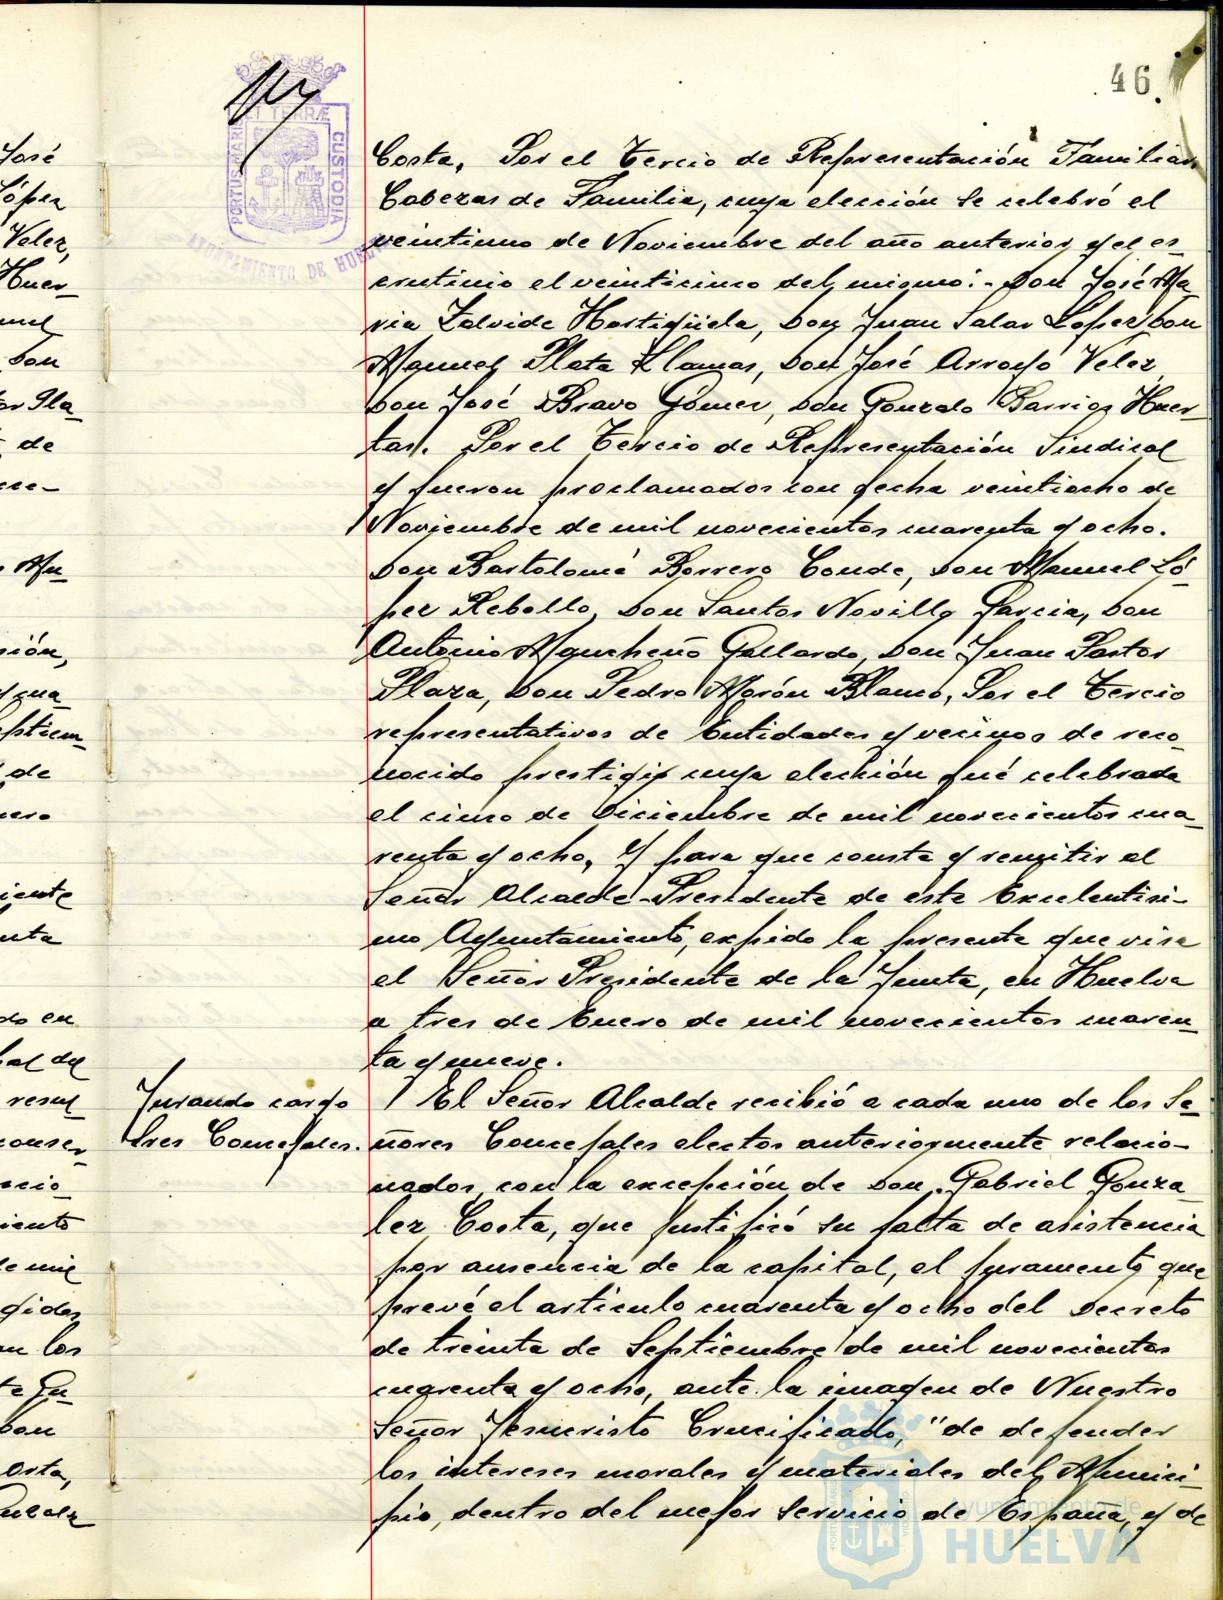 46.
PORTUS MARIS ET TERRÆ CUSTODIA
AYUNTAMIENTO DE HUELVA
José
López
Velez,
Huer-
Don
de
Costa, Por el Tercio de Representación Familiar
Cabezas de Familia, cuya elección se celebró el
veintiuno de Noviembre del año anterior y el es-
crutinio el veinticinco del mismo:- Don José Ma-
ria Zalvide Hostigüela, Don Juan Salas López, Don
Manuel Plata Llamas, Don José Arroyo Velez,
Don José Bravo Gómez, Don Gonzalo Barrios Huer-
tas. Por el Tercio de Representación Sindical
y fueron proclamados con fecha veintiocho de
Noviembre de mil novecientos cuarenta y ocho.
Don Bartolomé Borrero Conde, Don Manuel Ló-
pez Rebollo, Don Santos Novillo Garcia, Don
Antonio Mancheño Gallardo, Don Juan Pastor
Plaza, Don Pedro Morón Blanco, Por el Tercio
representativos de Entidades y vecinos de reco-
nocido prestigio cuya elección fué celebrada
el cinco de Diciembre de mil novecientos cua-
renta y ocho, Y para que conste y remitir al
Señor Alcalde-Presidente de este Excelentísi-
mo Ayuntamiento, expido la presente que visa
el Señor Presidente de la Junta, en Huelva
a tres de Enero de mil novecientos cuaren-
ta y nueve.
Jurando cargo
Sres Concejales.
El Señor Alcalde recibió a cada uno de los Se-
ñores Concejales electos anteriormente relacio-
nados, con la excepción de Don Gabriel Gonza-
lez Costa, que justificó su falta de asistencia
por ausencia de la capital, el juramento que
prevé el artículo cuarenta y ocho del Decreto
de treinta de Septiembre de mil novecientos
cuarenta y ocho, ante la imagen de Nuestro
Señor Jesucristo Crucificado, "de defender
los intereses morales y materiales del Munici-
pio, dentro del mejor servicio de España, y de
Ayuntamiento de
HUELVA